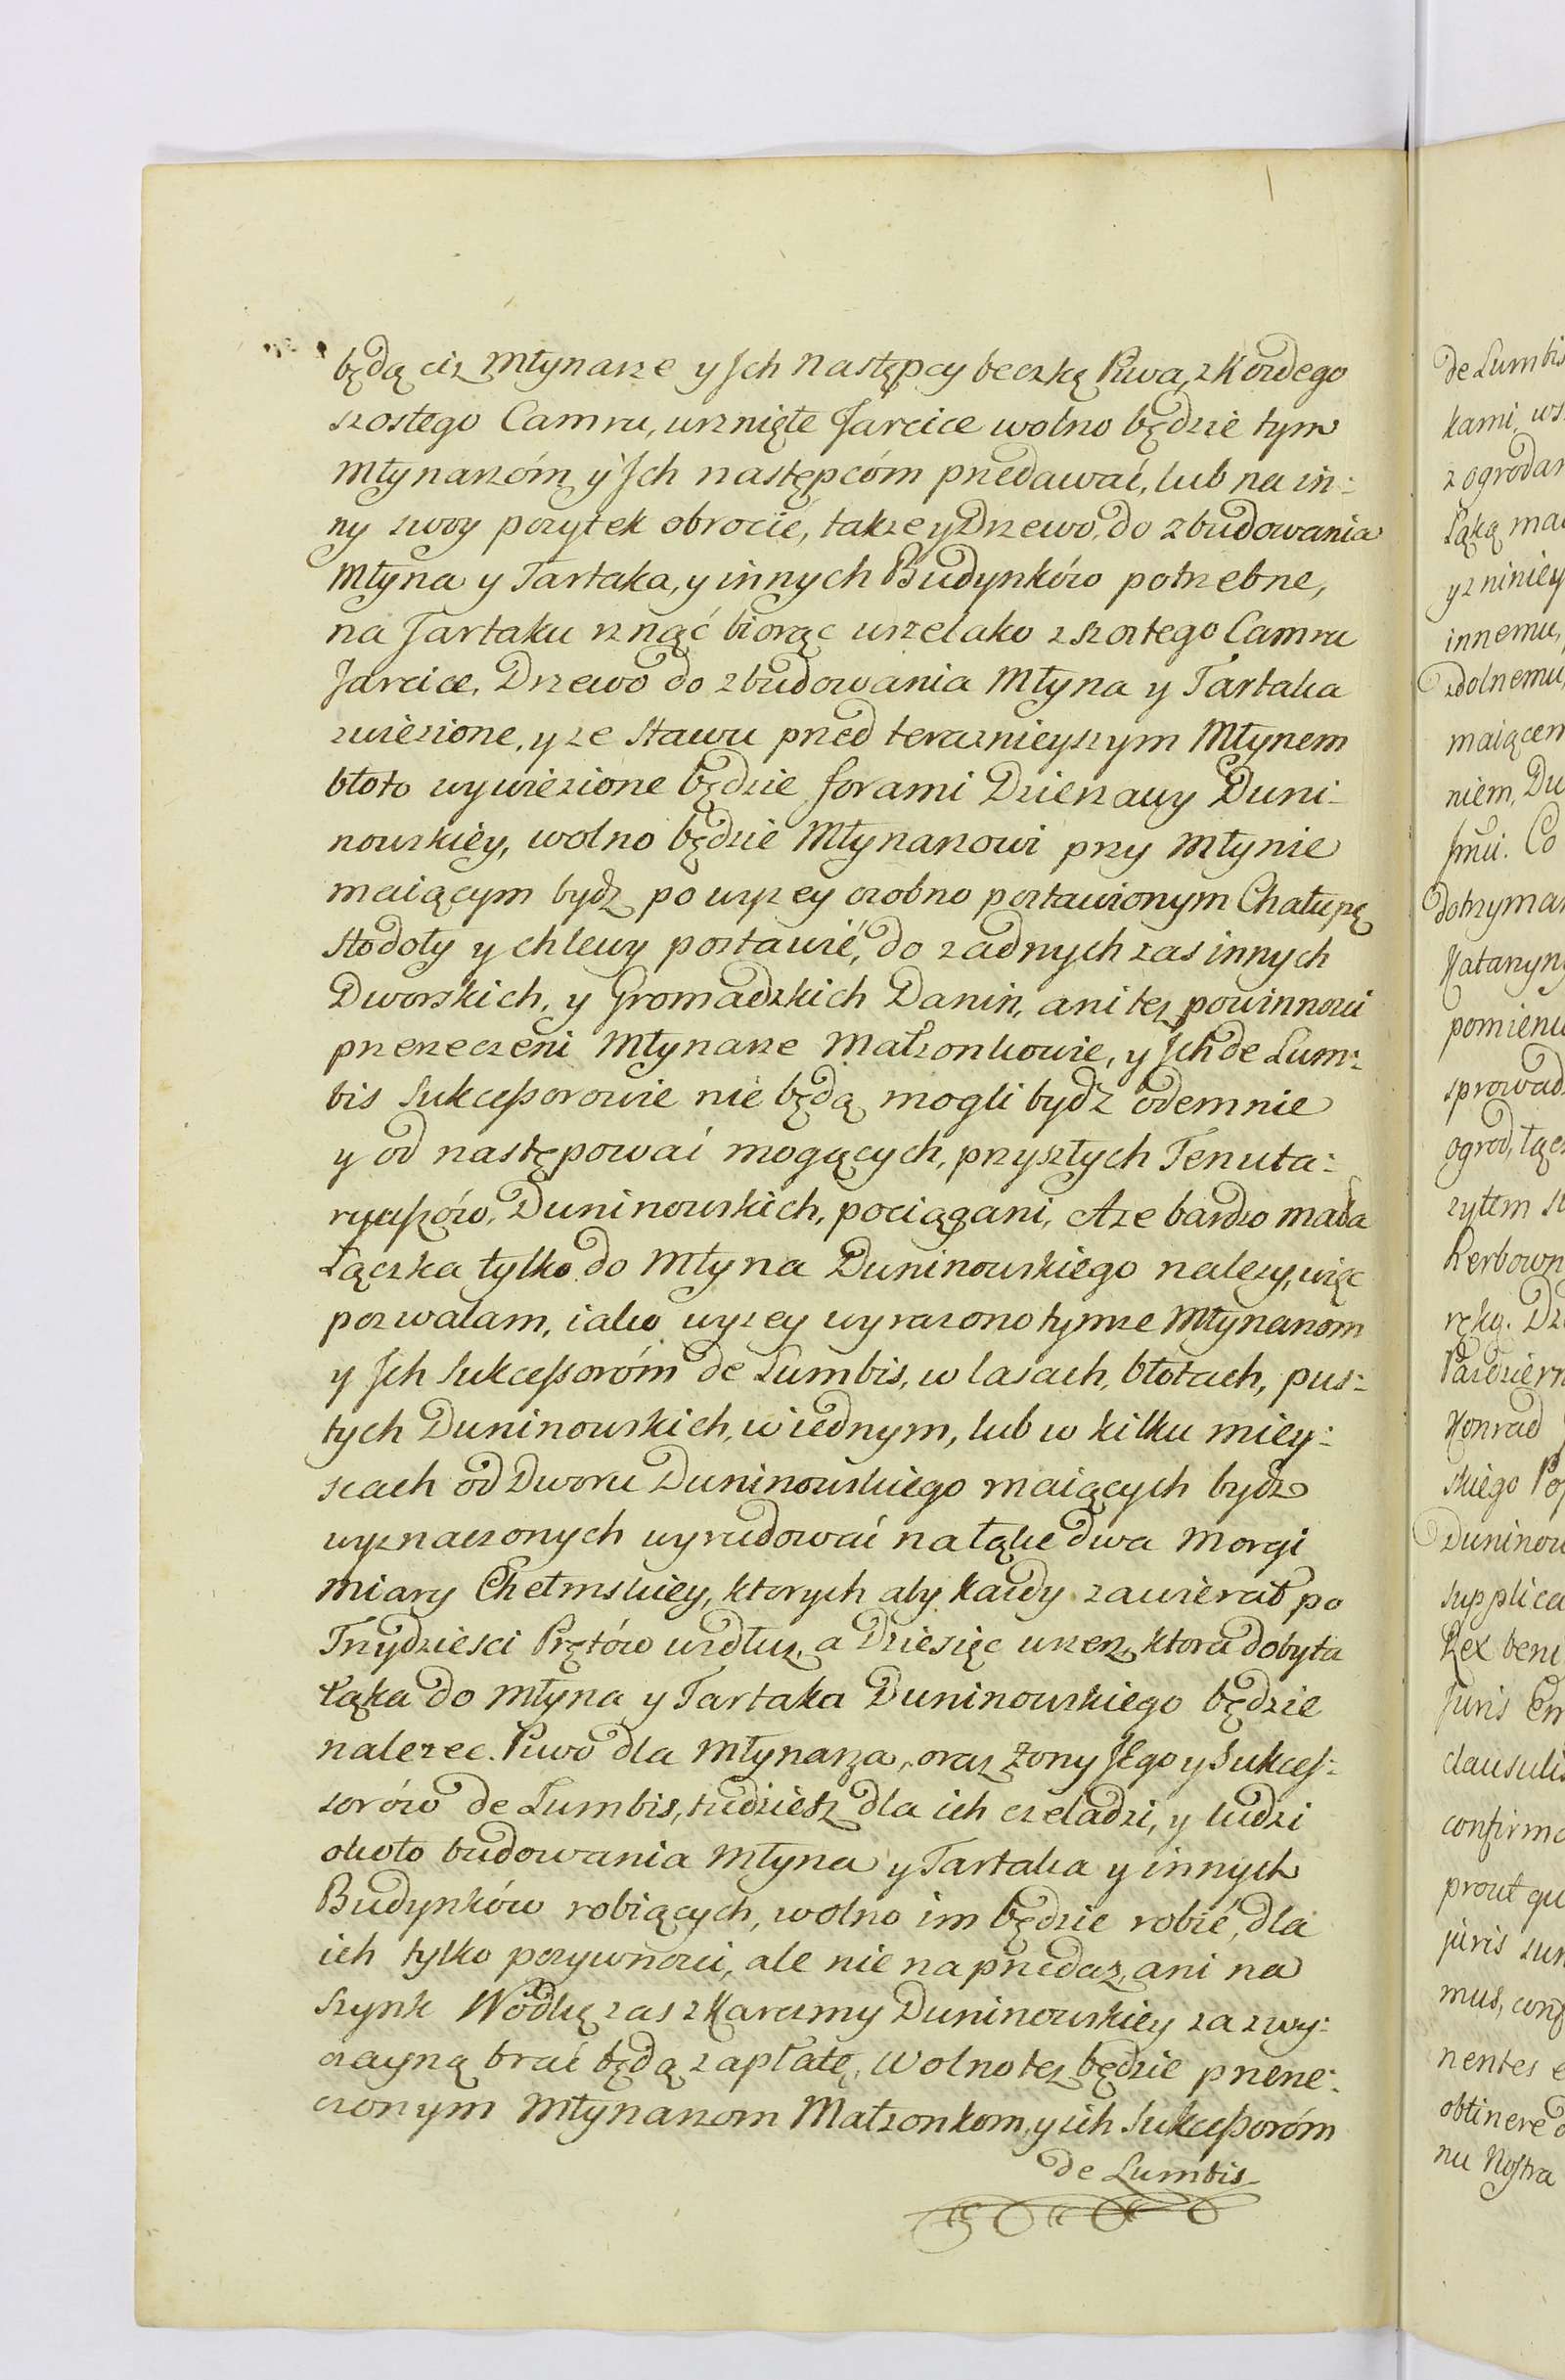 będą ciż Młynarze y Jch Następcy beczkę Piwa, z Kożdego
szostego Camru, urznięte Tarcice wolno będzie tym
Młynarzóm y Jch następcóm przedawać, lub na in:
ny swoy pożytek obrocić, także y Drzewo, do zbudowania
Młyna y Tartaka, y innych Budynków potrzebne,
na Tartaku rznąć biorąc wszelako z szostego Camru
Tarcice, Drzewo do zbudowania Młyna y Tartaka
zwiezione, y ze Stawu przed teraznieyszym Młynem
błoto wywiezione będzie forami Dzierzawy Duni:
nowskiey, wolno będzie Młynarzowi przy Młynie
maiącym bydz powyzey osobno postawionym Chałupę
Stodoły y chlewy postawić, do zadnych zas innych
Dworskich, y Gromadzkich Danin, ani tez powinnosci
przerzeczeni Młynarze Małzonkowie, y Jch de Lum:
bis Sukcessorowie nie będą mogli bydź odemnie
y od następować mogących, przyszłych Tenuta:
ryuszów, Duninowskich, pociągani, A ze bardzo mała
Łączka tylko do Młyna Duninowskiego nalezy, więc
pozwalam, iako wyzey wyrazono tymze Młynarzom
y Jch Sukcessoróm de Lumbis, w lasach, błotach, pus:
tych Duninowskich, w iednym, lub w kilku miey:
scach od Dworu Duninowskiego maiących bydz
wyznaczonych wyrudować na łąkę dwa Morgi
miary Chełmskiey, ktorych aby każdy zawierał po
Trzydziesci Prętów wzdłuz, a Dziesięc wszerz, ktora dobyta
łąka do Młyna y Tartaka Duninowskiego będzie
nalezec. Piwo dla Młynarza, oraz Zony Jego y Sukces:
sorów de Lumbis, tudziesz dla ich czeladzi, y ludzi
około budowania Młyna y Tartaka y innych
Budynków robiących, wolno im będzie robić, dla
ich tylko pozywnosci, ale nie na przedaz, ani na
Szynk Wódkę zas z Karczmy Duninowskiey za zwy:
czayną brać będą zapłatę, Wolno tez będzie przerze:
czonym Młynarzom Małzonkom, y ich Sukcessoróm
de Lumbis
de Lumbis
kami, ws
z ogrodam
Łąką ma
y z niniey
innemu,
zdolnemu,
maiącem
niem, Du
Co
dotrzyman
Katarzyn
pomieni
sprowad
ogrod, łąc
Herbown
ręką. Dz
Pazdziern
Konrad
skiego Po
Duninow
supplica
Rex beni
Juris Em
clausulis
confirma
prout qu
juris sun
mus, conf
nentes e
obtinere d
nu Nostra